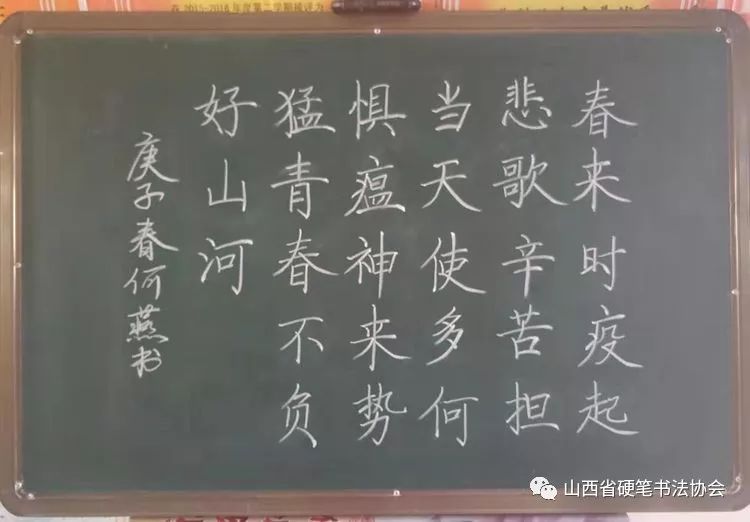 在2015-2016年度第二学期被评为
春来时疫起
悲歌辛苦担
当天使多何
惧瘟神来势
猛青春不负
好山河
庚子春何燕书
山西省硬笔书法协会